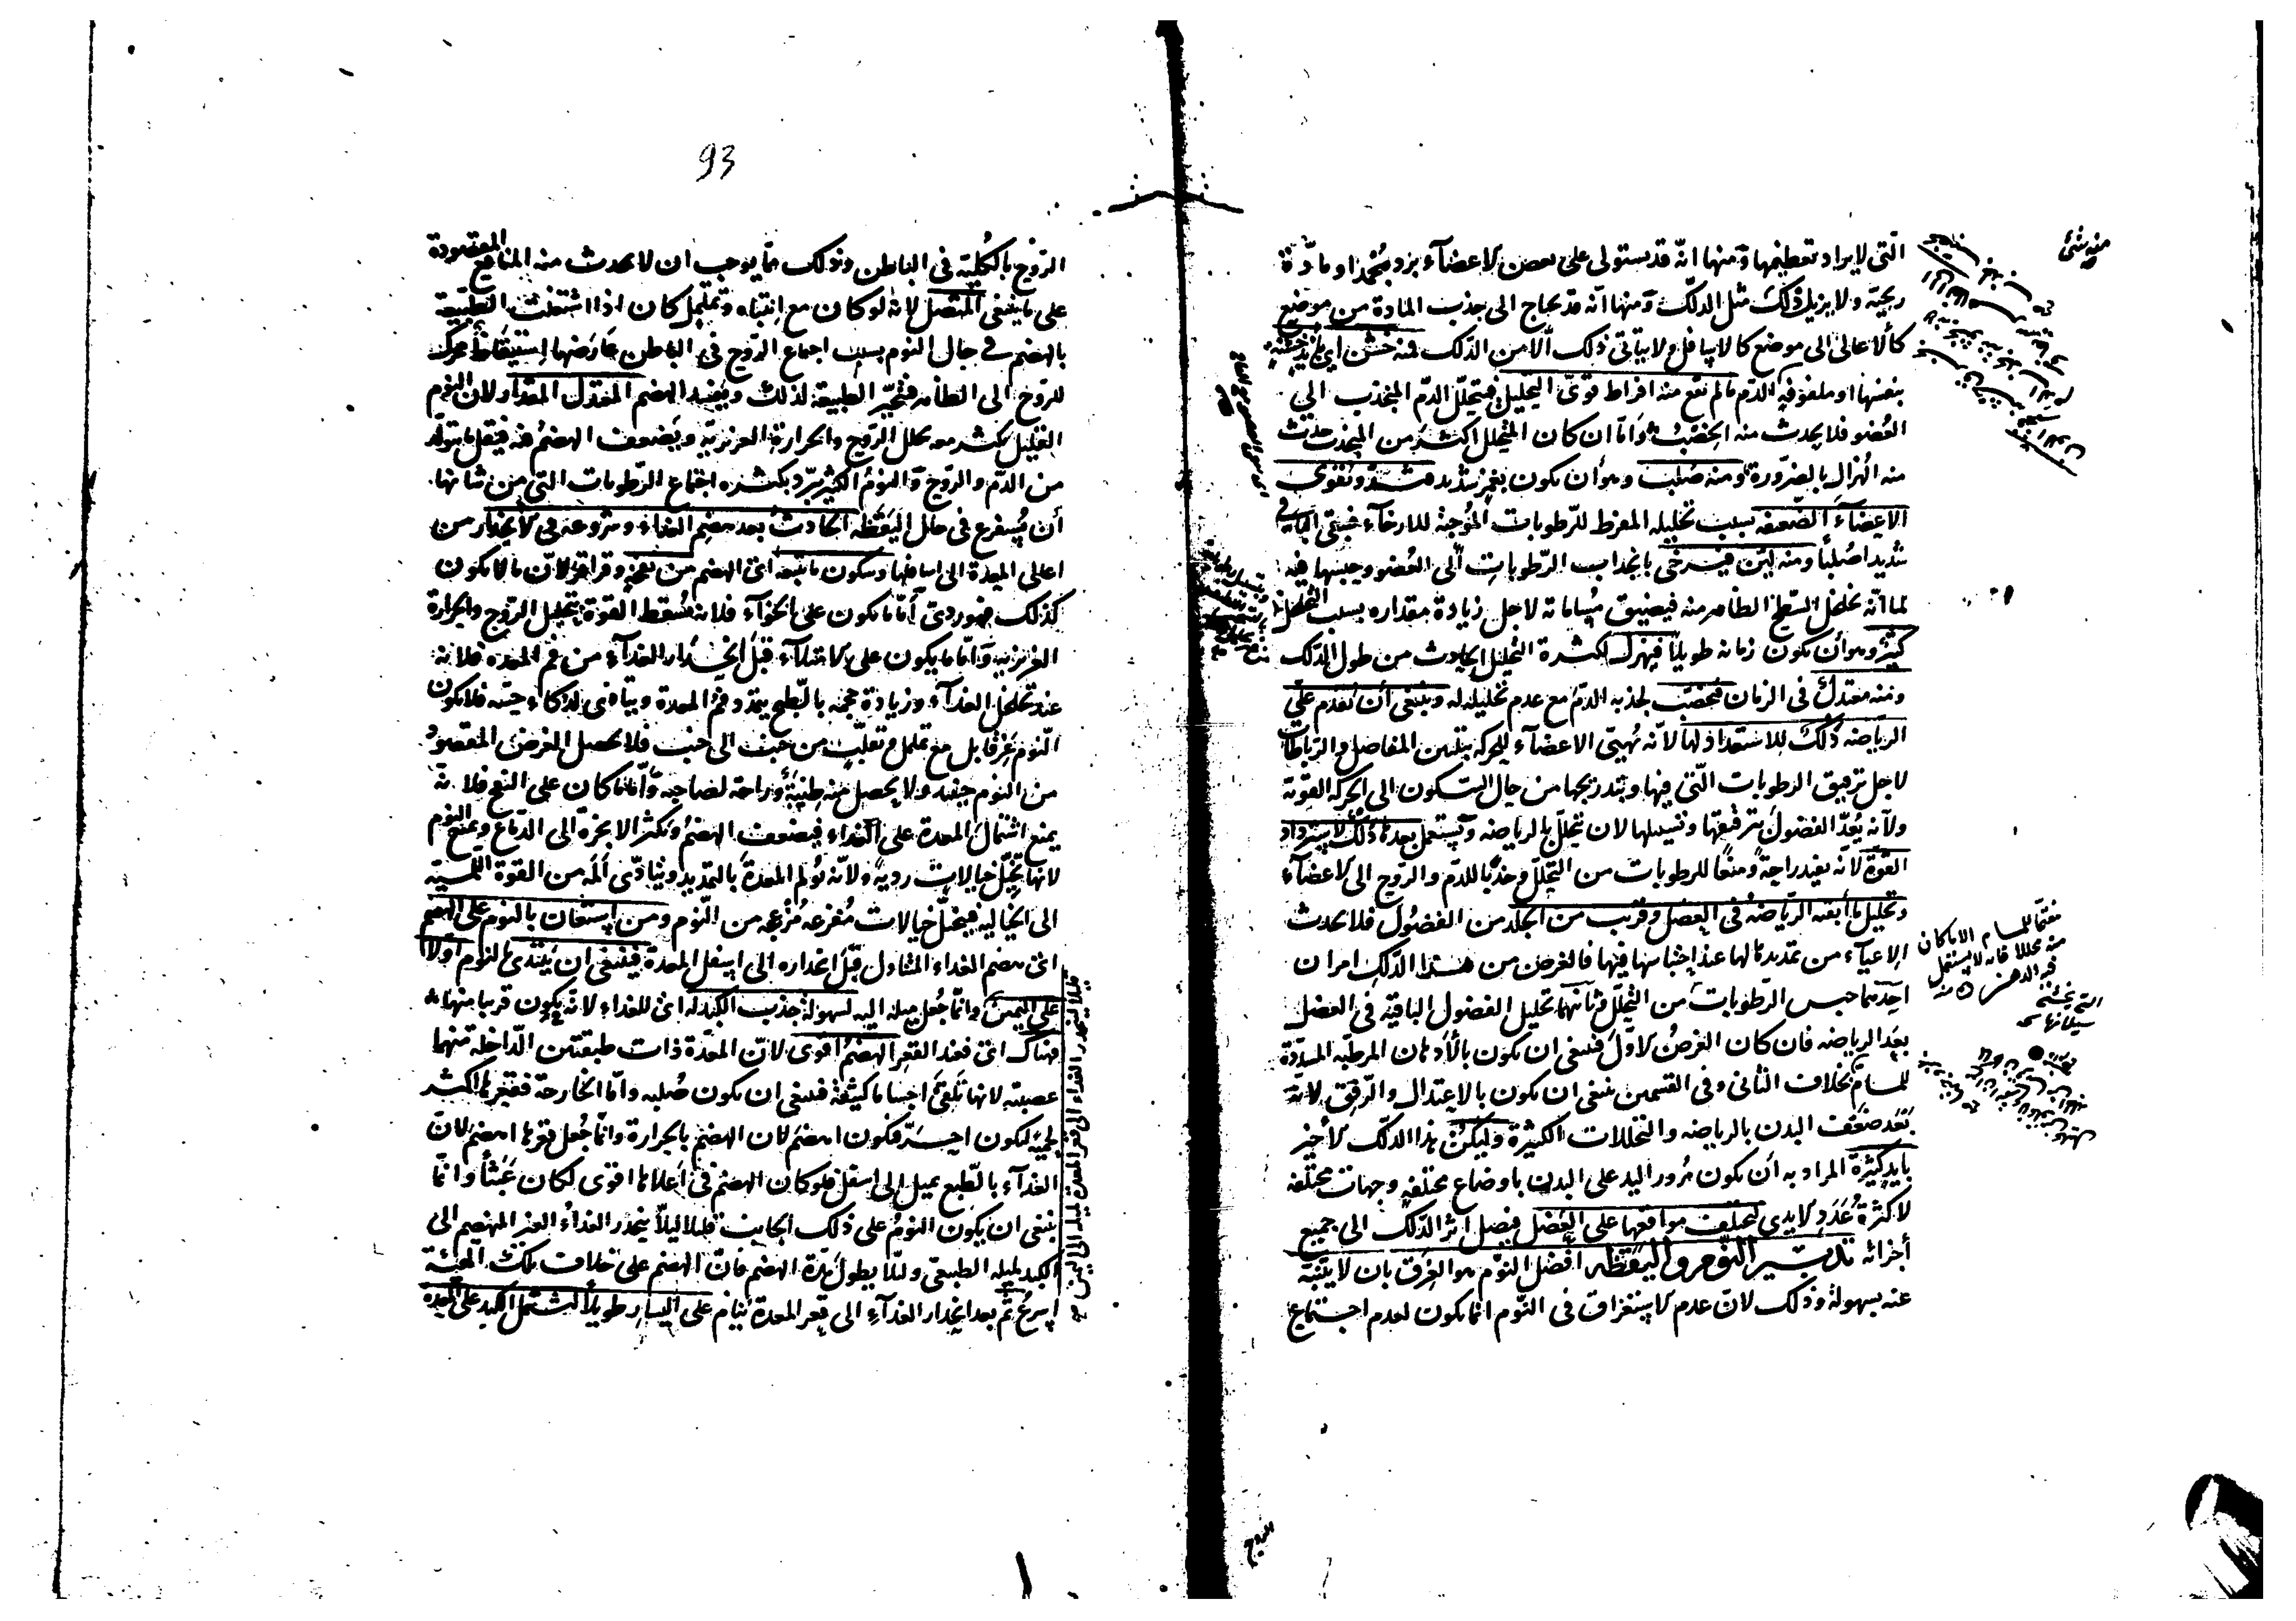 التى لا يراد تعظيمها ومنها انه قد يستولى على بعض الاعضاء برد مجمد او مادة
ريحية ولا يزيل ذلك مثل الدلك ومنها انه قد يحتاج الى جذب المادة من موضع
كالاعالى الى موضع كالاسافل ولا يتاتى ذلك الا من الدلك فمنه خشن اى
بنفسها او ملفوفة الدم ما لم تقع منه افراط قوى التحليل فيتحلل الدم المنجذب الى
العضو فلا يحدث منه الخصب واما ان كان المتحلل اكثر من المنجذب حدث
منه الهزال بالضرورة ومنه صلب وهو ان يكون بغمز شديد فتشد وتقوى
الاعضاء الضعيفة بسبب تحليله المفرط للرطوبات الموجبة للارخاء فيبقى الباقى
شديدا صلبا ومنه لين فيرخى بانجذاب الرطوبات الى العضو وحبسها فيه
لما انه تخلخل السطح الظاهر منه فيضيق مساماته لاجل زيادة مقداره بسبب التخلخل
كثير وهو أن يكون زمانه طويلا فيهزل لكثرة التحليل الحادث من طول الدلك
ومنه معتدل فى الزمان فيخصب لجذبه الدم مع عدم تحليله له وينبغى أن تقدم على
الرياضة ذلك للاستعداد لها لانه يهيئ الاعضاء للحركة بتليين المفاصل والرباطات
لاجل ترقيق الرطوبات التى فيها وبتدريجها من حال السكون الى الحركة القوية
ولانه يعد الفضول بترقيقها وتسييلها لان تتحلل بالرياضة ويستعمل بعدها ذلك لاسترداد
القوة لانه يفيد راحة ومنعا للرطوبات من التحلل وجذبا للدم والروح الى الاعضاء
وتحليل ما أبقته الرياضة فى العضل وقريب من الجلد من الفضول فلا يحدث
الاعياء من تمديدها لها عند احتباسها فيها فالغرض من هذا الدلك امران
احدهما حبس الرطوبات من التحلل وثانيهما تحليل الفضول الباقية فى العضل
بعد الرياضة فان كان الغرض الاول فينبغى ان يكون بالادهان المرطبة المسددة
للمسام بخلاف الثانى وفى القسمين ينبغى ان يكون بالاعتدال والرفق لانه
بعد ضعف البدن بالرياضة والتحللات الكثيرة وليكن هذا الدلك الاخير
بايد كثيرة المراد به ان يكون مرور اليد على البدن باوضاع مختلفة وجهات مختلفة
لا كثرة عدد الايدى لتختلف مواقعها على العضل فيصل اثر الدلك الى جميع
أجزائه تدبير النوم واليقظة افضل النوم هو الغرق بان لا ينتبه
عنه بسهولة وذلك لان عدم الاستغراق فى النوم انما يكون لعدم اجتماع
مفتحا للمسام الا ما كان
منه محللا فانه لا يستعمل
فيه الدهن
الروح
93
الروح بالكلية فى الباطن وذلك مما يوجب ان لا يحدث منه المنافع المقصودة
على ما ينبغى المتصل لانه لو كان مع انتباه وتململ كان اذا اشتغلت الطبيعة
بالهضم فى حال النوم بسبب اجتماع الروح فى الباطن عارضها استيقاظ محرك
للروح الى الظاهر فتتحير الطبيعة لذلك ويفسد الهضم المعتدل المقدار لان النوم
القليل يكثر معه تحلل الروح والحرارة الغريزية ويضعف الهضم فيه فيقل ما يتولد
من الدم والروح والنوم الكثير يبرد بكثرة اجتماع الرطوبات التى من شانها
أن تستفرغ فى حال اليقظة الحادث بعد هضم الغذاء وشروعه فى الانحدار من
اعالى المعدة الى اسافلها وسكون ما يتبعه اى الهضم من نفخ وقراقر لان ما لا يكون
كذلك فهو ردى أما ما يكون على الخواء فلانه يسقط القوة بتحليل الروح والحرارة
الغريزية واما ما يكون على الامتلاء قبل انحدار الغذاء من فم المعدة فلانه
عند تخلخل الغذاء وزيادة حجمه بالطبخ يتمدد فم المعدة ويتاذى لذكاء حسه فلا يكون
النوم غرقا بل مع تململ وتقلب من جنب الى جنب فلا يحصل الغرض المقصود
من النوم حينئذ ولا يحصل منه طيبة وراحة لصاحبه واما ما كان على النفخ فلانه
يمنع اشتمال المعدة على الغذاء فيضعف الهضم وتكثر الابخرة الى الدماغ ويمنع النوم
لانها تخيل خيالات ردية ولانه يولم المعدة بالتمديد ويتادى المه من القوة اللمسية
الى الخيالية فيتخيل خيالات مفزعة مزعجة من النوم ومن استعان بالنوم على الهضم
اى هضم الغذاء المتناول قبل انحداره الى اسفل المعدة فينبغى ان يبتدى بالنوم اولا
على اليمين وانما جعل ميله اليه لسهولة جذب الكبد له اى للغذاء لانه يكون قريبا منها
هناك اى فعند القعر الهضم اقوى لان المعدة ذات طبقتين الداخلة منهما
عصبية لانها تلقى اجساما كثيفة فينبغى ان يكون صلبه واما الخارجة فقعرها اكثر
لحمية لتكون احر فيكون اهضم لان الهضم بالحرارة وانما جعل قعرها اهضم لان
الغذاء بالطبع يميل الى اسفل فلو كان الهضم فى أعلاها اقوى لكان عبثا وانما
ينبغى ان يكون النوم على ذلك الجانب قليلا ليلا ينحدر الغذاء الغير المنهضم الى
الكبد لميله الطبيعى ولئلا يطول مدة الهضم فان الهضم على خلاف تلك الهيئة
اسرع ثم بعد انحدار الغذاء الى قعر المعدة ينام على اليسار طويلا لتشتمل الكبد على المعدة